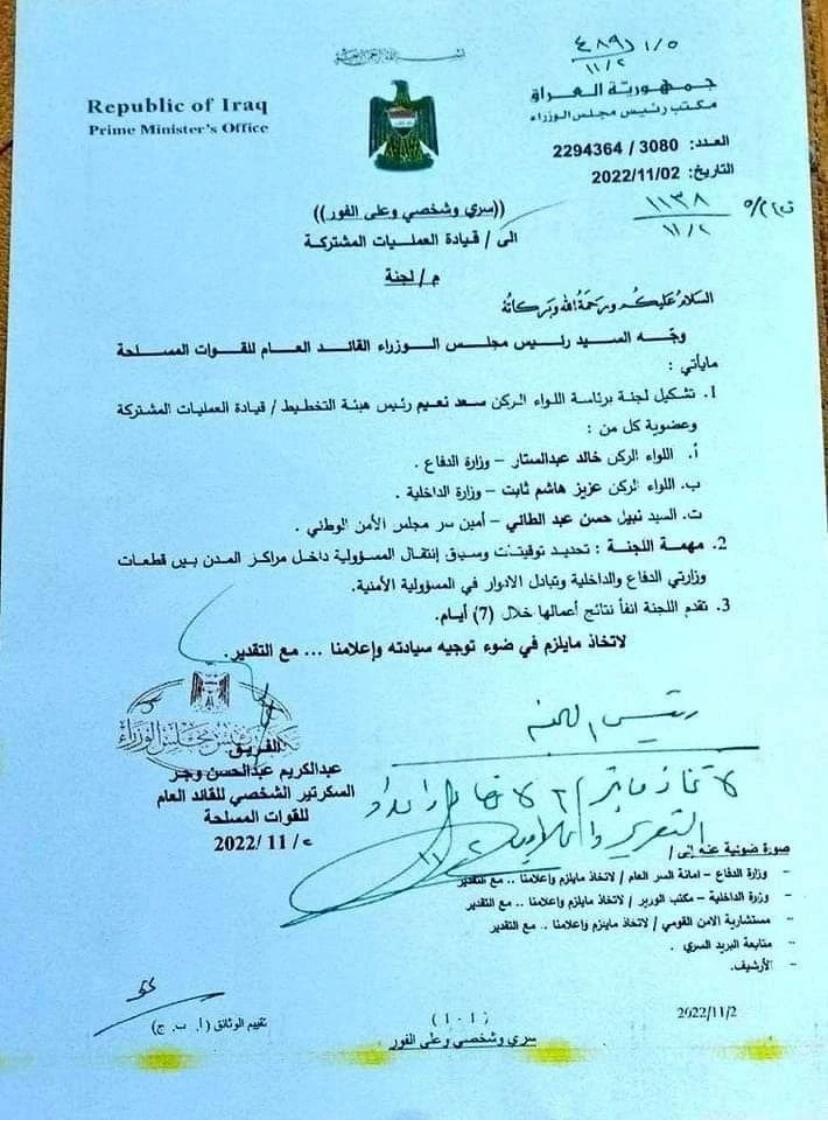 بسم الله الرحمن الرحيم
Republic of Iraq
Prime Minister's Office
جمهورية العراق
مكتب رئيس مجلس الوزراء
العدد: 3080 / 2294364
التاريخ: 2022/11/02
١١٣٨
١١/٢
((سري وشخصي وعلى الفور))
الى / قيادة العمليات المشتركة
م / لجنة
السلام عليكم ورحمة الله وبركاته
وجه السيد رئيس مجلس الوزراء القائد العام للقوات المسلحة
مايأتي :
1. تشكيل لجنة برئاسة اللواء الركن سعد نعيم رئيس هيئة التخطيط / قيادة العمليات المشتركة
وعضوية كل من :
أ. اللواء الركن خالد عبدالستار – وزارة الدفاع .
ب. اللواء الركن عزيز هاشم ثابت – وزارة الداخلية .
ت. السيد نبيل حسن عبد الطائي – أمين سر مجلس الأمن الوطني .
2. مهمة اللجنة : تحديد توقيتات وسياق إنتقال المسؤولية داخل مراكز المدن بين قطعات
وزارتي الدفاع والداخلية وتبادل الادوار في المسؤولية الأمنية.
3. تقدم اللجنة انفاً نتائج أعمالها خلال (7) أيام.
لاتخاذ مايلزم في ضوء توجيه سيادته وإعلامنا ... مع التقدير.
مكتب رئيس مجلس الوزراء
الفريق
عبدالكريم عبدالحسن وجر
السكرتير الشخصي للقائد العام
للقوات المسلحة
/ 11 / 2022
رئيس اللجنة
صورة ضوئية عنه إلى /
– وزارة الدفاع – امانة السر العام / لاتخاذ مايلزم وإعلامنا .. مع التقدير
– وزرة الداخلية – مكتب الوزير / لاتخاذ مايلزم وإعلامنا .. مع التقدير
– مستشارية الامن القومي / لاتخاذ مايلزم وإعلامنا .. مع التقدير
– متابعة البريد السري .
– الأرشيف.
2022/11/2
(١ - ١)
تقييم الوثائق (أ. ب. ج)
سري وشخصي وعلى الفور